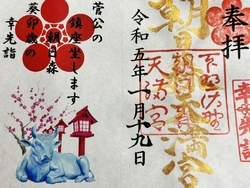 奉拝
朝日森天満宮
下野佐野
天満宮
令和五年一月十九日
菅公の
鎮座坐します
朝日森
癸卯歳の
幸先詣